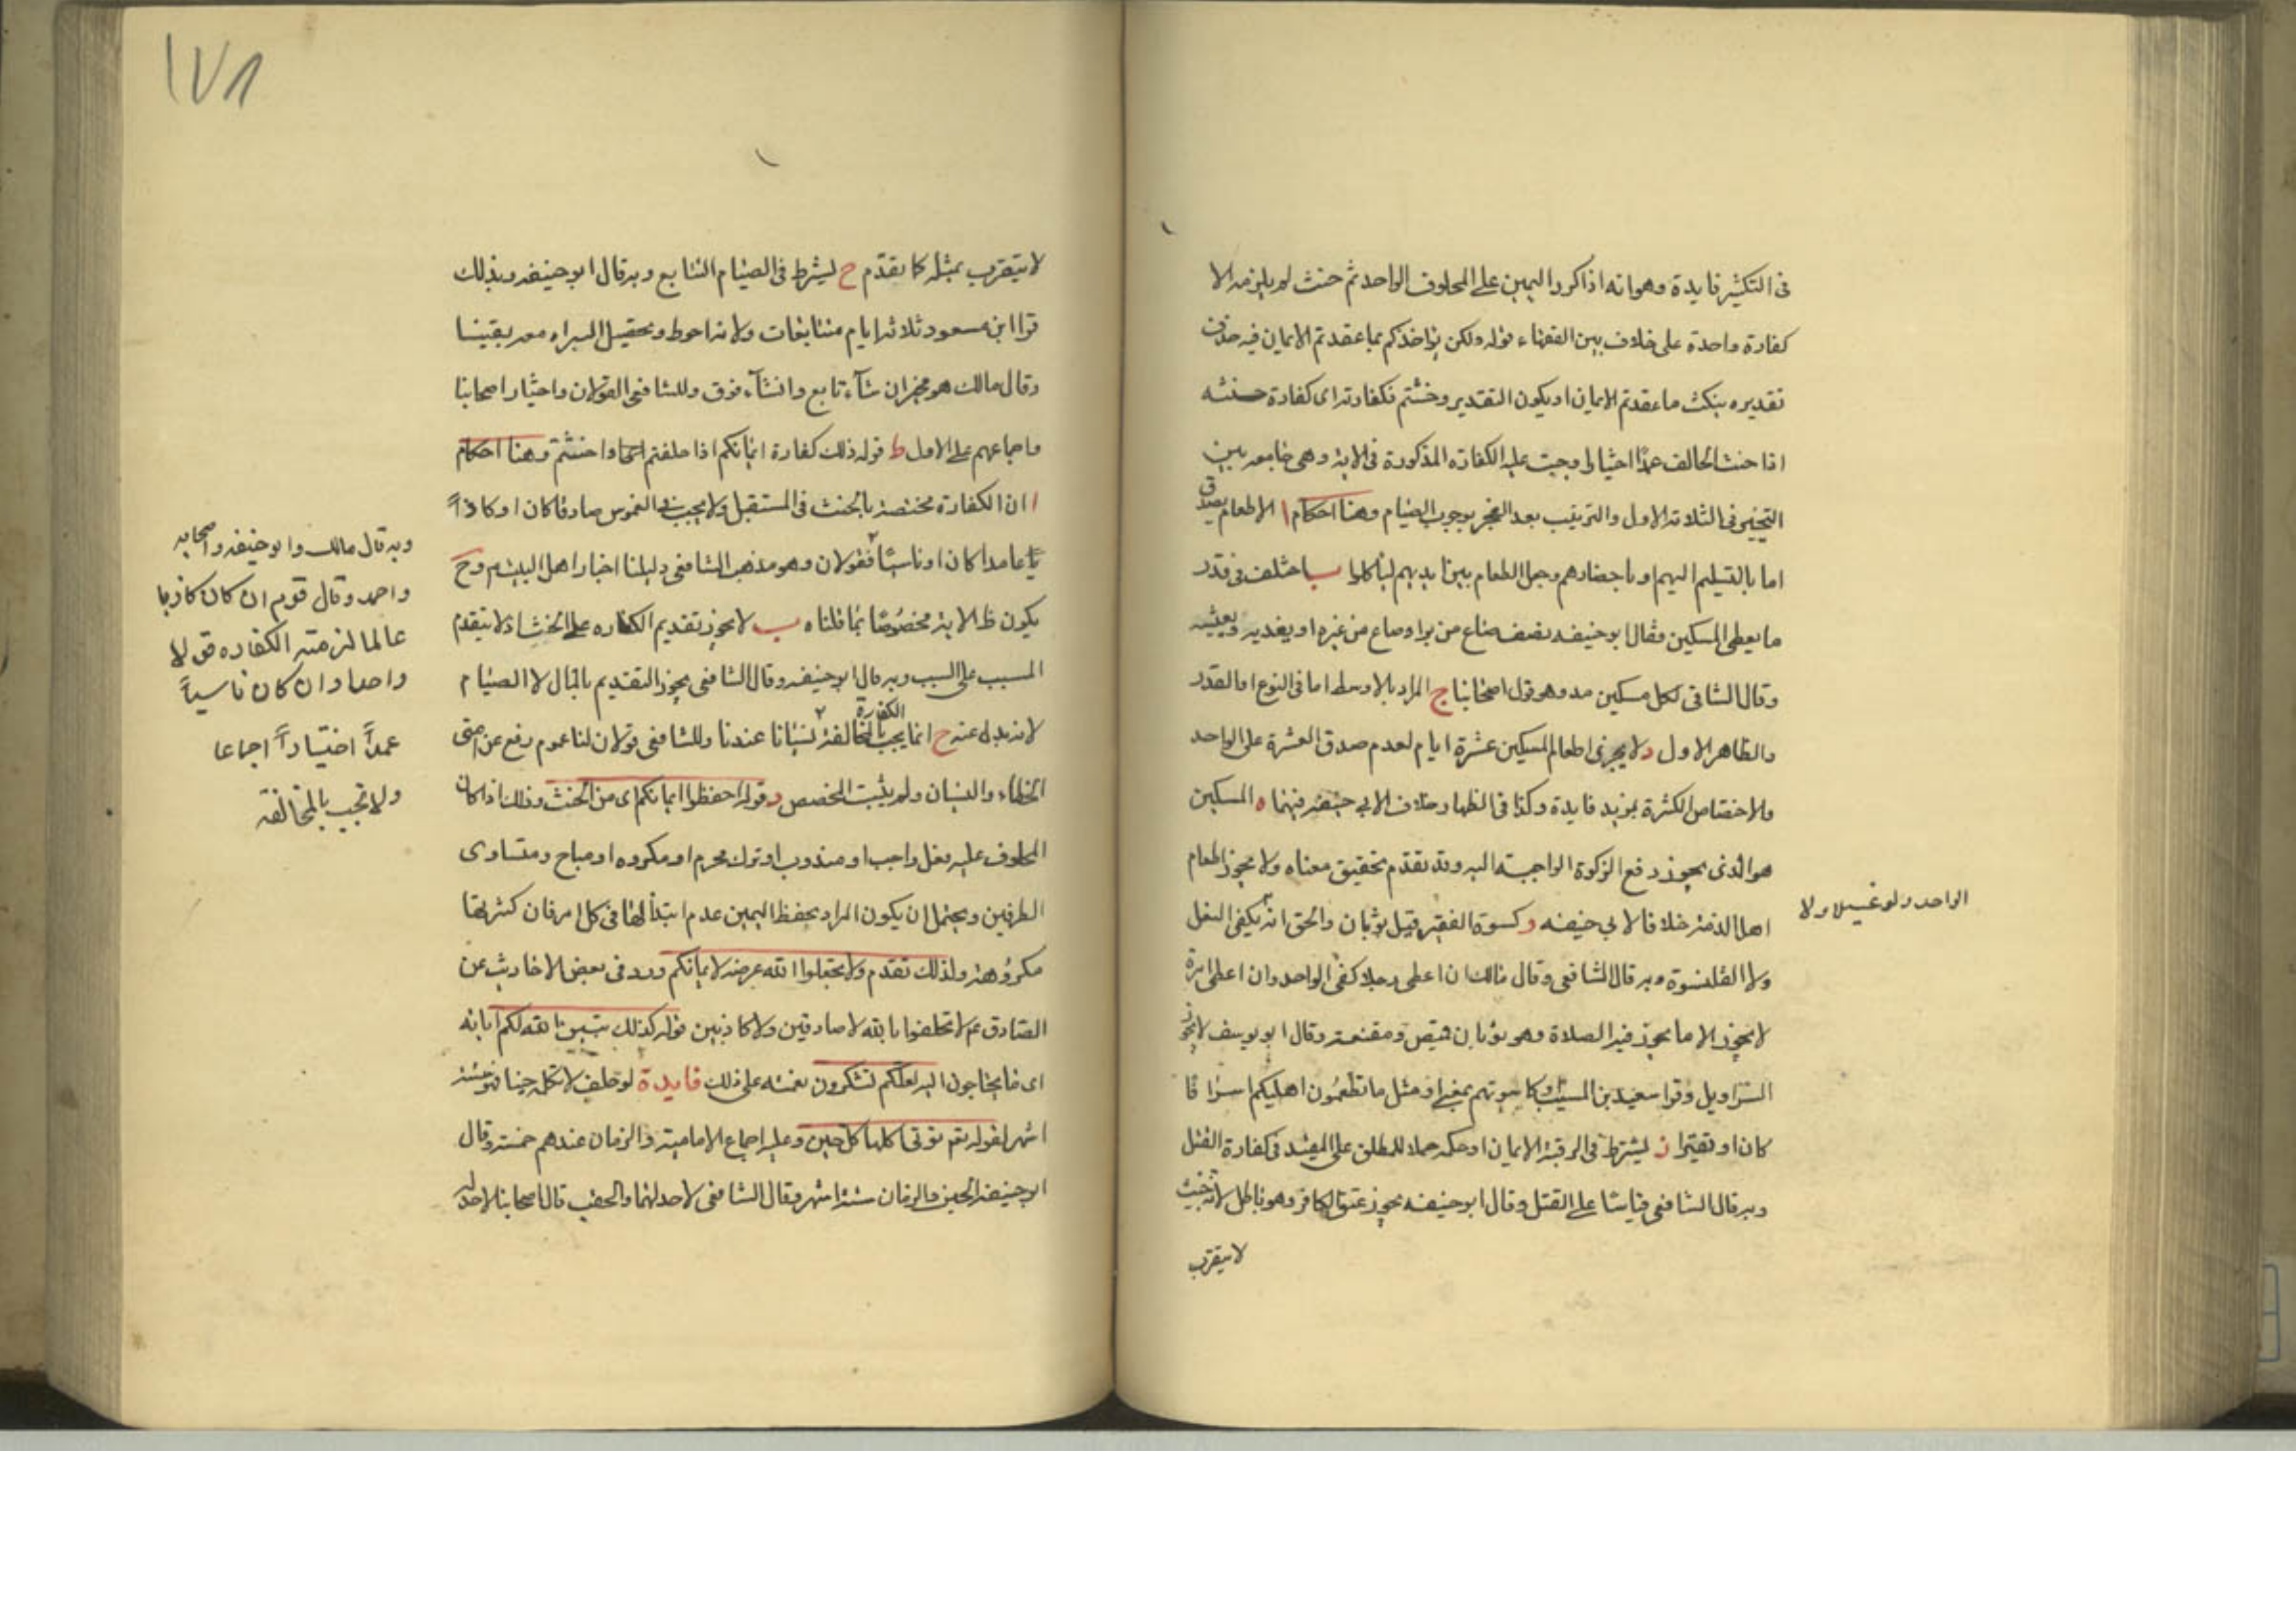 فى التكثير فايدة وهو انه اذا كرر اليمين على المحلوف الواحد ثم حنث لم يلزمه الا
كفارة واحدة على خلاف بين الفقهاء قوله ولكن يؤاخذكم بما عقدتم الايمان فيه حذف
تقديره بنكث ما عقدتم الايمان او يكون التقدير وحنثتم فكفارته اى كفارة حنثه
اذا حنث الحالف عمدًا اختيارا وجبت عليه الكفارة المذكورة فى الاية وهى جامعه بين
التخيير فى الثلاثة الاول والترتيب بعد العجز بوجوب الصيام وهنا احكام ا الاطعام يصدق
اما بالتسليم اليهم او باحضارهم وجعل الطعام بين ايديهم لياكلوا ب اختلف فى قدر
ما يعطى المسكين فقال ابو حنيفه نصف صاع من بر او صاع من غيره او يغديه ويعشيه
وقال الشافعى لكل مسكين مد وهو قول اصحابنا ج المراد بالاوسط اما فى النوع او القدر
والظاهر الاول د لا يجزى اطعام المسكين عشرة ايام لعدم صدق العشرة على الواحد
ولاختصاص الكثرة بمزيد فايدة وكذا فى الظهار وخلاف لابى حنيفه فيهما ه المسكين
هو الذى يجوز دفع الزكوة الواجبة اليه وقد تقدم تحقيق معناه ولا يجوز اطعام
اهل الذمة خلافا لابى حنيفه و كسوة الفقير قيل ثوبان والحق انه يكفى
الواحد ولو غسيلا ولا
ولا القلنسوة وبه قال الشافعى وقال مالك ان اعطى رجلا كفى الواحد وان اعطى امرة
لا يجوز الا ما يجوز فيه الصلاة وهو ثوبان قميص ومقنعة وقال ابو يوسف لا يجوز
السراويل وقرا سعيد بن المسيب او كاسوتهم بمعنى او مثل ما تطعمون اهليكم سرا فا
كان او تقتيرا ز يشترط فى الرقبة الايمان او حكمه حملا للمطلق على المقيد فى كفارة القتل
وبه قال الشافعى قياسًا على القتل وقال ابو حنيفه يجوز عتق الكافر وهو باطل لانه خبيث
لا يتقرب
١٧٨
لا يتقرب بمثله كما تقدم ح يشرط فى الصيام التتابع وبه قال ابو حنيفه وبذلك
قرا ابن مسعود ثلاثة ايام متتابعات ولانه احوط وتحصيل البراءه معه يقينا
وقال مالك هو مخير ان شآء تابع وان شآء فرق وللشافعى القولان واختيار اصحابنا
واجماعهم على الاول ط قوله ذلك كفارة ايمانكم اذا حلفتم اى اذا حنثتم وهنا احكام
ا ان الكفارة مختصة بالحنث فى المستقبل ولا يجب فى الغموس صادقا كان او كاذبًا
عامدا كان او ناسيًا فقولان وهو مذهب الشافعى دليلنا اخبار اهل البيت ع م وح
يكون ظ الاية مخصوصًا بما قلناه ب لا يجوز تقديم الكفاره على الحنث اذ لا يتقدم
المسبب على السبب وبه قال ابو حنيفه وقال الشافعى يجوز التقديم بالمال لا الصيام
لانه بدل عنه ج انما يجب الكفارة بالمخالفة نسيانا عندنا وللشافعى قولان لنا عموم رفع عن امتى
الخطاء والنسيان ولم يثبت المخصص د قوله احفظوا ايمانكم اى من الحنث وذلك اذا كان
المحلوف عليه بفعل واجب او مندوب او ترك محرم او مكروه او مباح ومتساوى
الطرفين ويحتمل ان يكون المراد بحفظ اليمين عدم ابتذالها فى كل امر فان كثرتها
مكروهة ولذلك تقدم ولا تجعلوا الله عرضة لايمانكم وورد فى بعض الاحاديث عن
الصادق ع م لا تحلفوا بالله لا صادقين ولا كاذبين قوله كذلك يبين الله لكم اياته
اى ما يحتاجون اليه لعلكم تشكرون نعمته على ذلك فايدة لو حلف لا تكلم حينا فهو ستة
اشهر لقوله تع تؤتى اكلها كل حين وعليه اجماع الامامية والزمان عندهم خمسة وقال
ابو حنيفه الحين والزمان ستة اشهر وقال الشافعى لا حد لهما والحقب قال اصحابنا لا حد له
وبه قال مالك وابو حنيفه واصحابه
واحمد وقال قوم ان كان كاذبا
عالما لزمته الكفاره قولا
واحدا وان كان ناسياً
عمداً اختياراً اجماعا
ولا تجب بالمخالفة